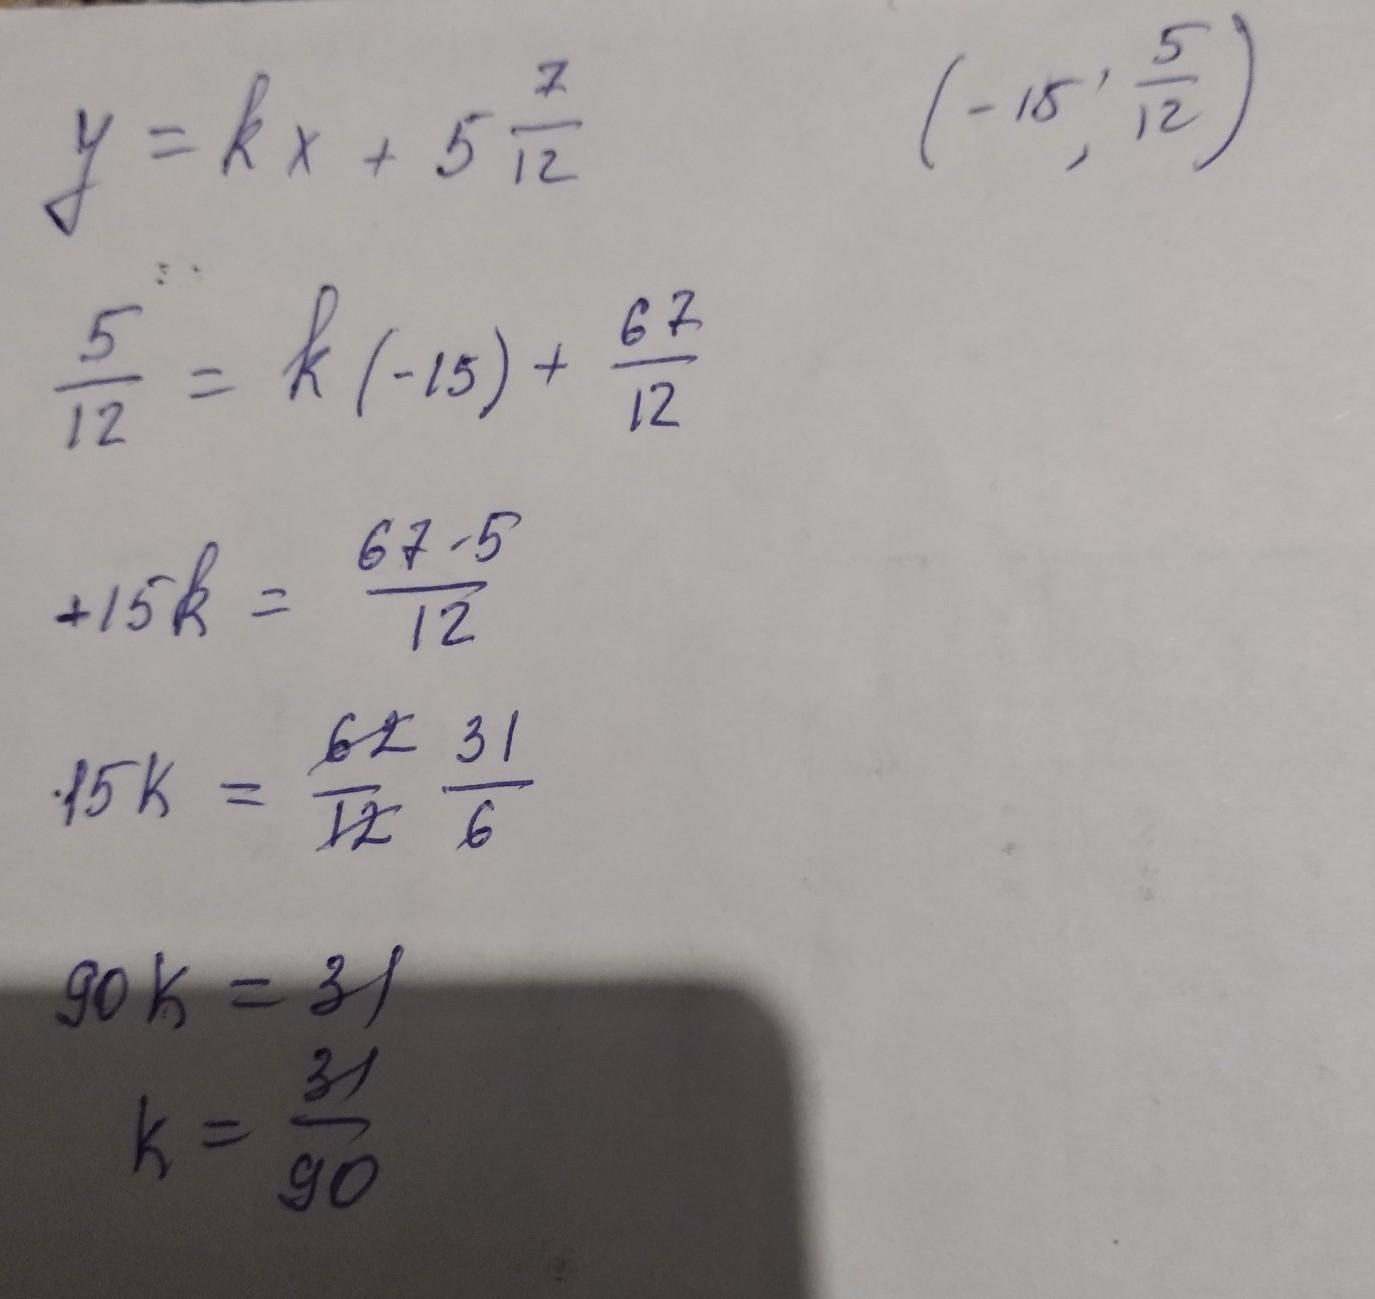 y = kx + 5 7/12 (-15; 5/12)
5/12 = k(-15) + 67/12
+15k = 67-5/12
15k = 62/12 31/6
90k = 31
k = 31/90